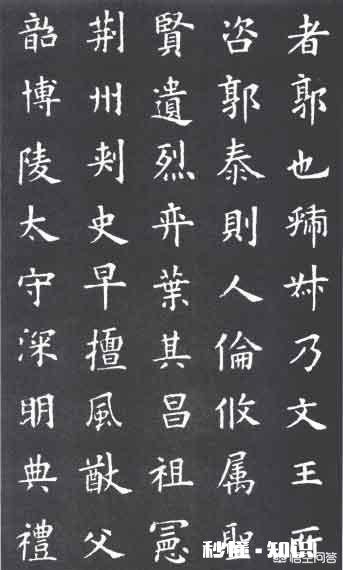 者郭也虢叔乃文王所
咨郭泰則人倫攸属聖
賢遺烈弈葉其昌祖憲
荆州刺史早擅風猷父
韶博陵太守深明典禮
秒懂·知识
悟空问答